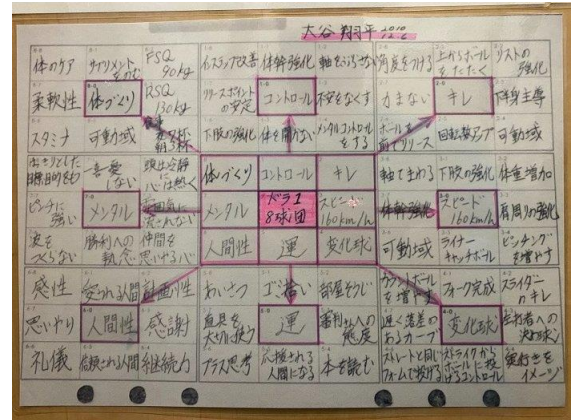 大谷 翔平 2010 12.6
体のケア サプリメントをのむ FSQ 90kg インステップ改善 体幹強化 軸をぶらさない 角度をつける 上からボールをたたく リストの強化
柔軟性 体づくり RSQ 130kg リリースポイントの安定 コントロール 不安をなくす 力まない キレ 下半身主導
スタミナ 可動域 食事 夜7杯 朝3杯 下肢の強化 体を開かない メンタルコントロールをする ボールを前でリリース 回転数アップ 可動域
はっきりとした目標、目的をもつ 一喜一憂しない 頭は冷静に心は熱く 体づくり コントロール キレ 軸でまわる 下肢の強化 体重増加
ピンチに強い メンタル 雰囲気に流されない メンタル ドラ1 8球団 スピード160km/h 体幹強化 スピード160km/h 肩周りの強化
波をつくらない 勝利への執念 仲間を思いやる心 人間性 運 変化球 可動域 ライナーキャッチボール ピッチングを増やす
感性 愛される人間 計画性 あいさつ ゴミ拾い 部屋そうじ カウントボールを増やす フォーク完成 スライダーのキレ
思いやり 人間性 感謝 道具を大切に使う 運 審判さんへの態度 遅く落差のあるカーブ 変化球 左打者への決め球
礼儀 信頼される人間 継続力 プラス思考 応援される人間になる 本を読む ストレートと同じフォームで投げる ストライクからボールに投げるコントロール 奥行きをイメージ